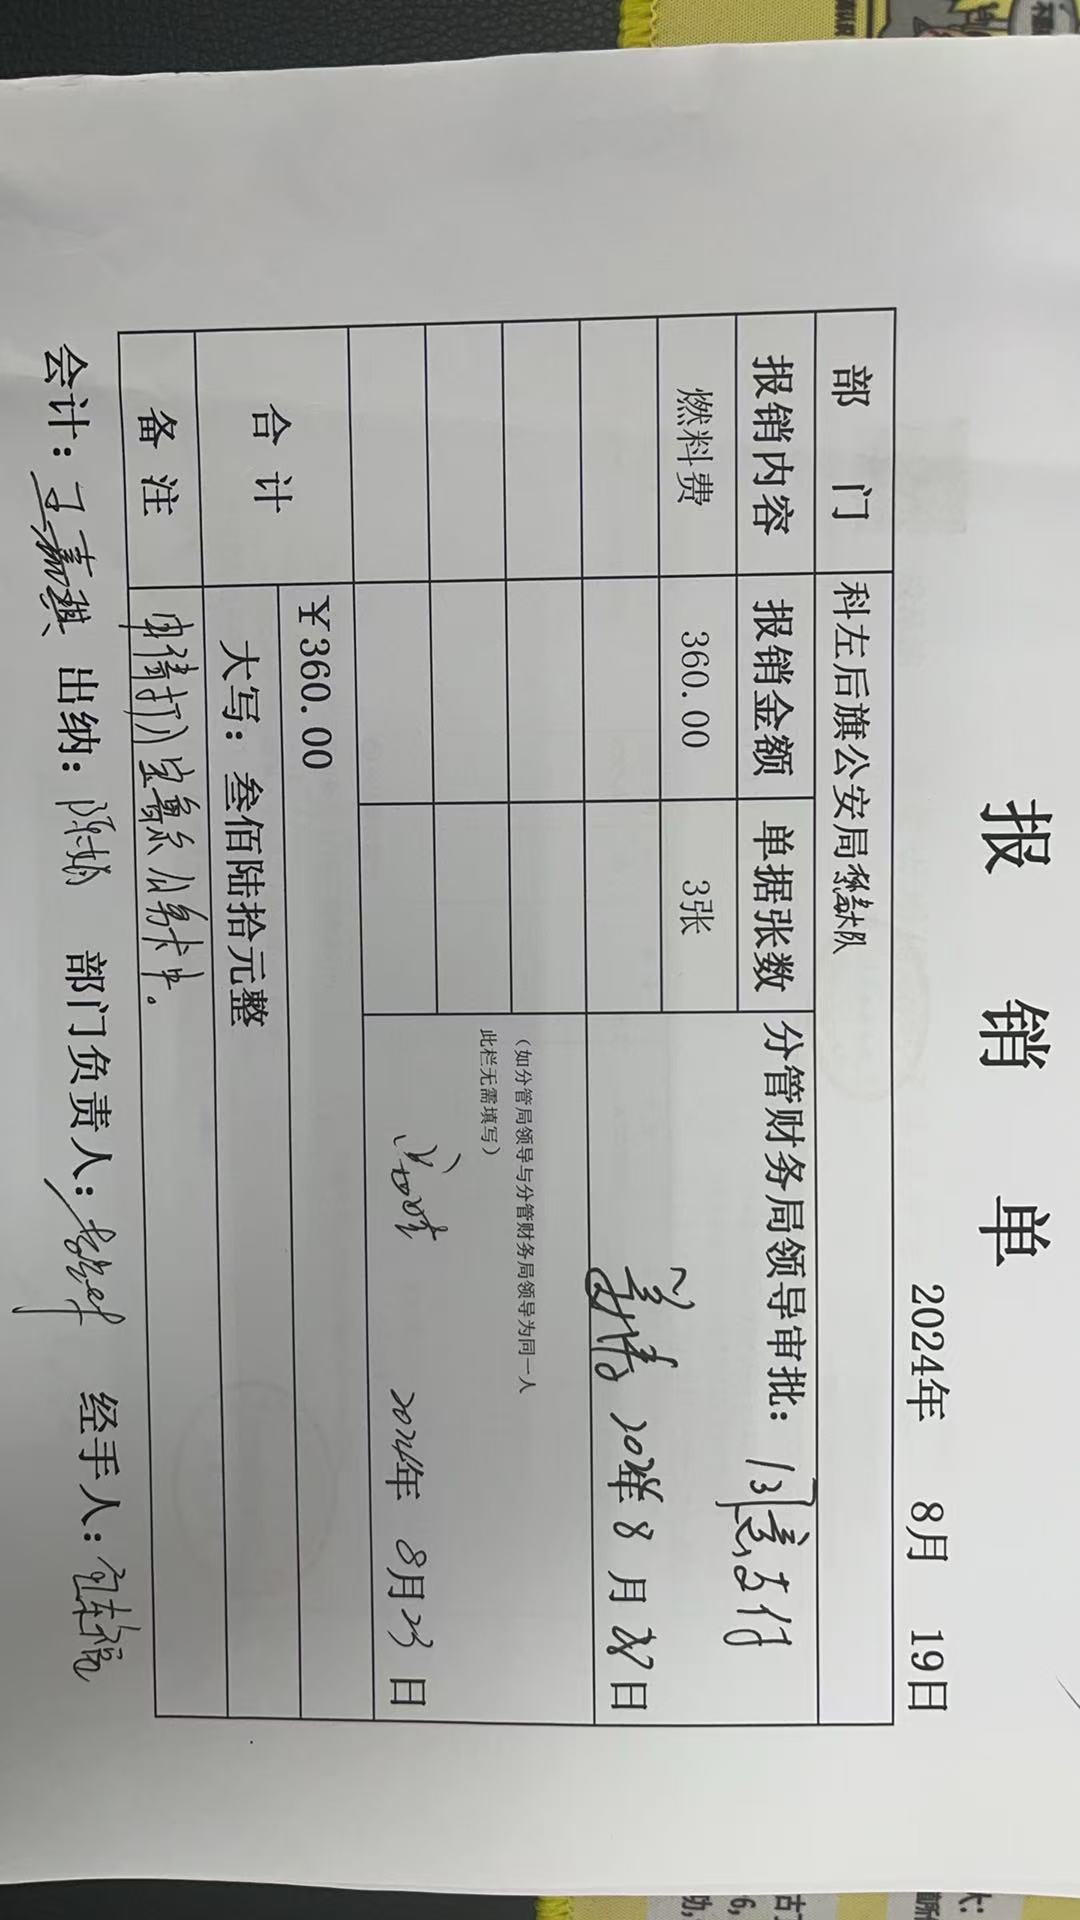 报 销 单
2024年 8月 19日
部 门 科左后旗公安局 大队
报销内容 报销金额 单据张数 分管财务局领导审批：同意支付
燃料费 360.00 3张
2024年 8 月 28日
（如分管局领导与分管财务局领导为同一人
此栏无需填写）
2024年 8月23日
合 计 ￥360.00
大写：叁佰陆拾元整
备 注 申请打入 公务卡中。
会计：王嘉琪 出纳：陈娟 部门负责人： 经手人：